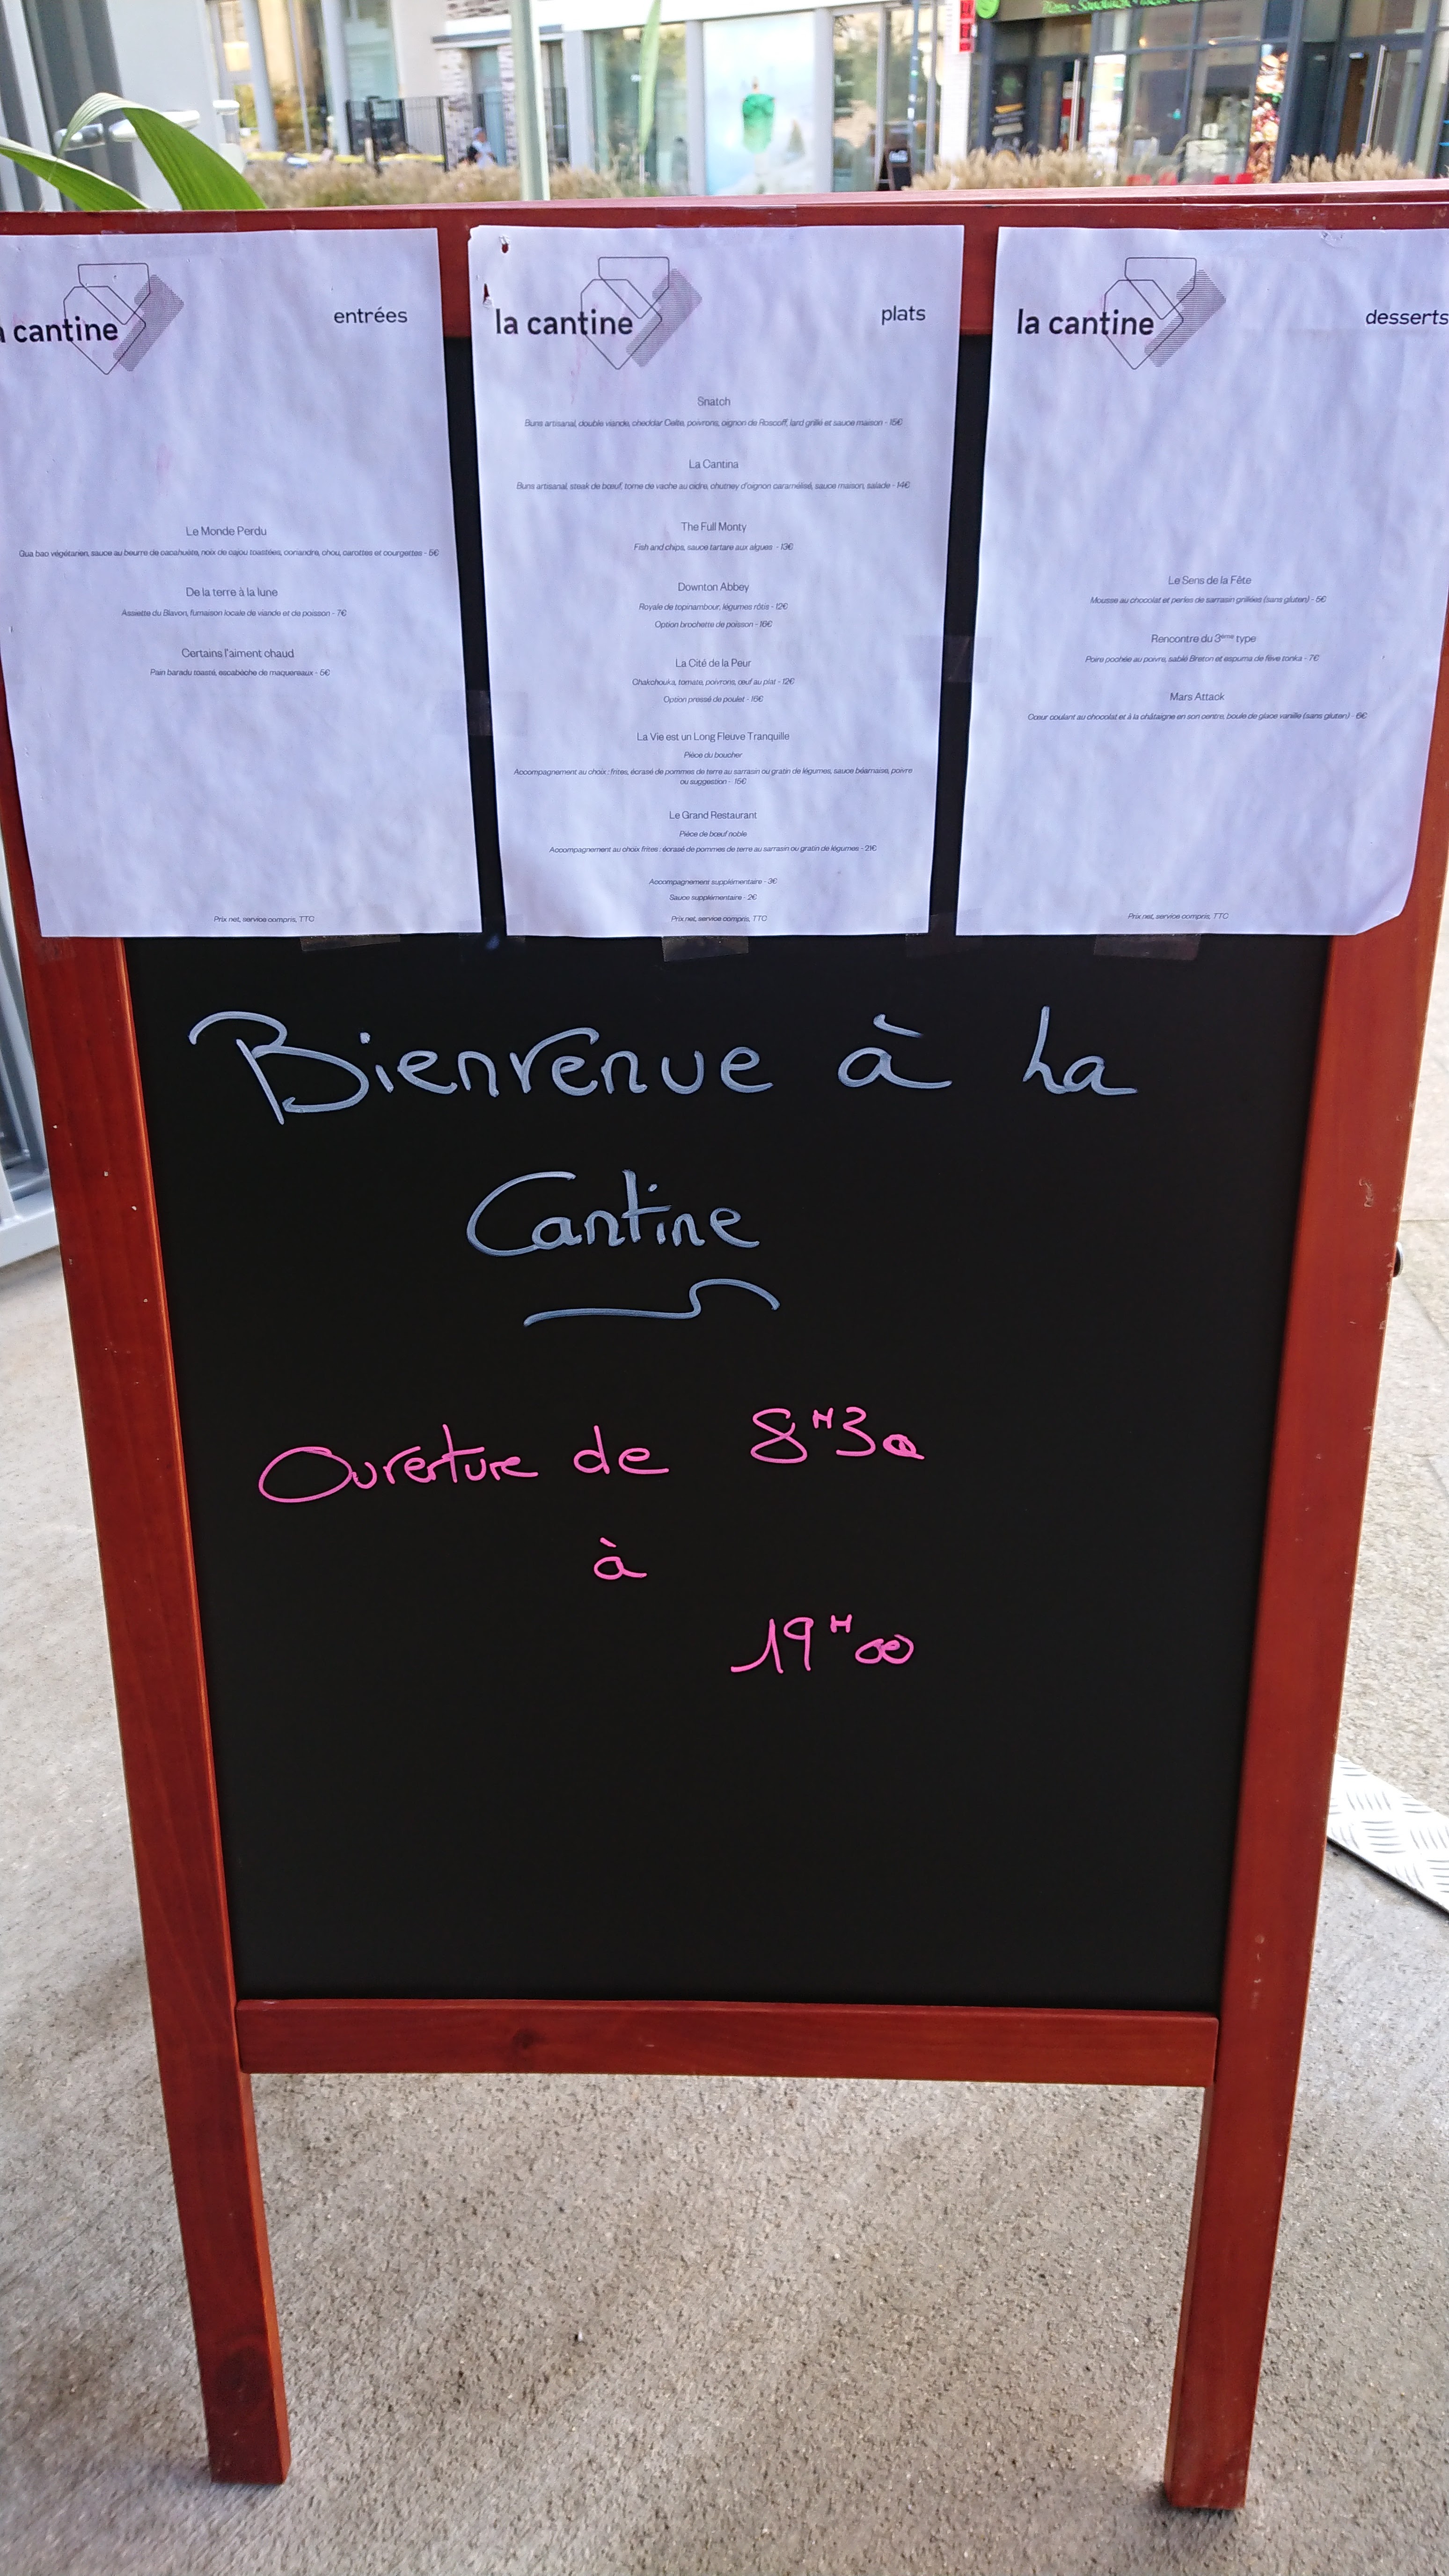 a cantine
entrées
Le Monde Perdu
Gua bao végétarien, sauce au beurre de cacahuète, noix de cajou toastées, coriandre, chou, carottes et courgettes - 5€
De la terre à la lune
Assiette du Blavon, fumaison locale de viande et de poisson - 7€
Certains l'aiment chaud
Pain baradu toasté, escabèche de maquereaux - 5€
Prix net, service compris, TTC
la cantine
plats
Snatch
Buns artisanal, double viande, cheddar Celte, poivrons, oignon de Roscoff, lard grillé et sauce maison - 15€
La Cantina
Buns artisanal, steak de bœuf, tome de vache au cidre, chutney d'oignon caramélisé, sauce maison, salade - 14€
The Full Monty
Fish and chips, sauce tartare aux algues - 13€
Downton Abbey
Royale de topinambour, légumes rôtis - 12€
Option brochette de poisson - 16€
La Cité de la Peur
Chakchouka, tomate, poivrons, œuf au plat - 12€
Option pressé de poulet - 16€
La Vie est un Long Fleuve Tranquille
Pièce du boucher
Accompagnement au choix : frites, écrasé de pommes de terre au sarrasin ou gratin de légumes, sauce béarnaise, poivre
ou suggestion - 15€
Le Grand Restaurant
Pièce de bœuf noble
Accompagnement au choix frites : écrasé de pommes de terre au sarrasin ou gratin de légumes - 21€
Accompagnement supplémentaire - 3€
Sauce supplémentaire - 2€
Prix net, service compris, TTC
la cantine
desserts
Le Sens de la Fête
Mousse au chocolat et perles de sarrasin grillées (sans gluten) - 5€
Rencontre du 3ème type
Poire pochée au poivre, sablé Breton et espuma de fève tonka - 7€
Mars Attack
Cœur coulant au chocolat et à la châtaigne en son centre, boule de glace vanille (sans gluten) - 6€
Prix net, service compris, TTC
Bienvenue à La
Cantine
Ouverture de 8H30
à
19H00